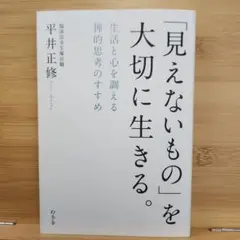 「見えないもの」を
大切に生きる。
生活と心を調える
禅的思考のすすめ
臨済宗全生庵住職
平井正修
幻冬舎